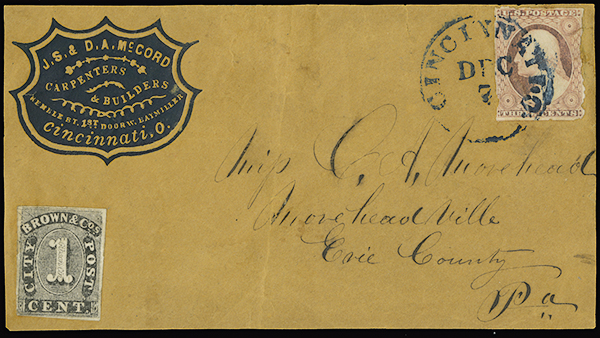 J. S. & D. A. McCORD
CARPENTERS
& BUILDERS
KEMBLE ST. 1ST DOOR W. BAYMILLER
Cincinnati. O.
CINCINNATI O.
DEC
U.S. POSTAGE
THREE CENTS
Miss C. A. Morehead
Moreheadville
Erie County
Pa
BROWN & CO'S
CITY POST
1
CENT.